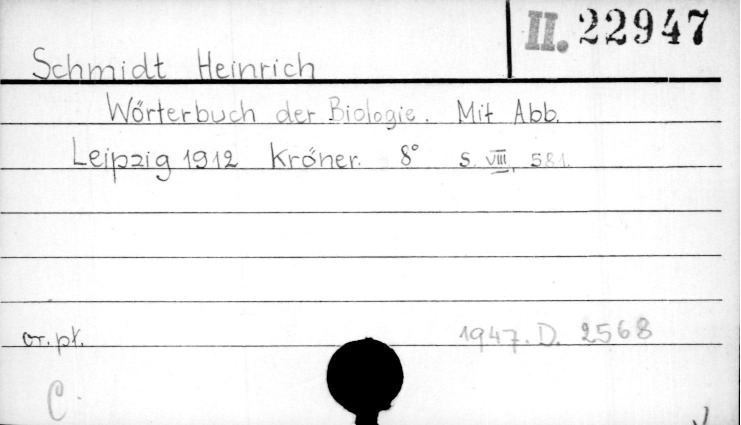 II. 22947
Schmidt Heinrich
Wörterbuch der Biologie. Mit Abb.
Leipzig 1912 Kröner. 8° S. VIII, 581.
or. pł.
1947. D. 2568
C.